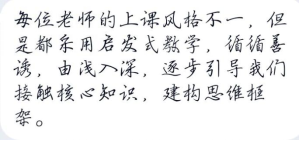 每位老师的上课风格不一，但
是都乐用启发式教学，循循善
诱，由浅入深，逐步引导我们
接触核心知识，建构思维框
架。